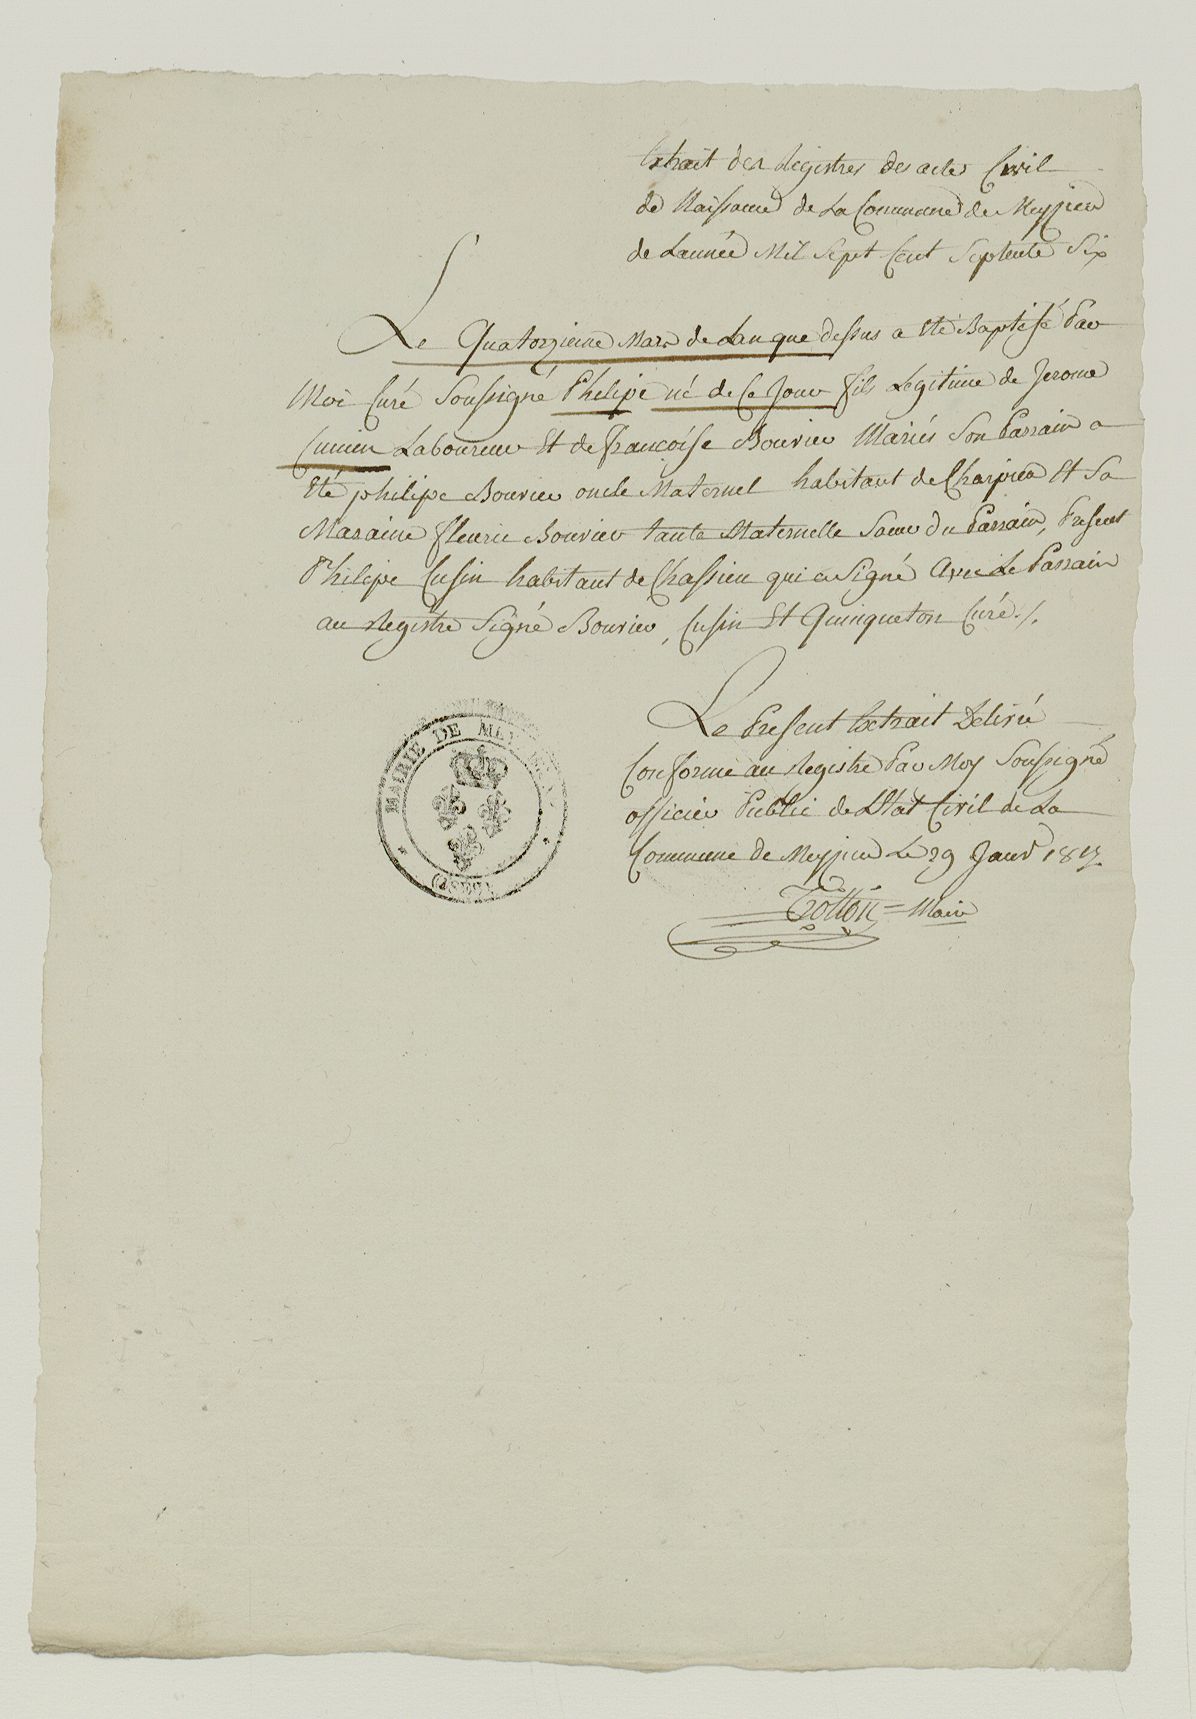 Extrait des Registres des actes Civil
de Naissance de La Commune de Meyzieu
de Lannée Mil Sept Cent Septente Six
Le Quatorzieme Mars de Lan que dessus a Eté Baptisé Par
Moi Curé Soussigné Philipe né de Ce Jour fils Legitime de Jerome
Laboureur Et de francoise Bouvier Mariés Son Parrain a
Eté philipe Bouvier oncle Maternel habitant de Charpieu Et Sa
Maraine fleurie Bouvier tante Maternelle Soeur du Parrain, Present
Philipe Cusin habitant de Chassieu qui a Signé Avec Le Parrain
au Registre Signé Bouvier, Cusin Et Quinqueton Curé ./.
Le Present Extrait Délivré
Conforme au Registre Par Moy Soussigné
officier Public de L'Etat Civil de La
Commune de Meyzieu Le 29 Janv 1817
Maire
MAIRIE DE MEYZIEU
(ISERE)